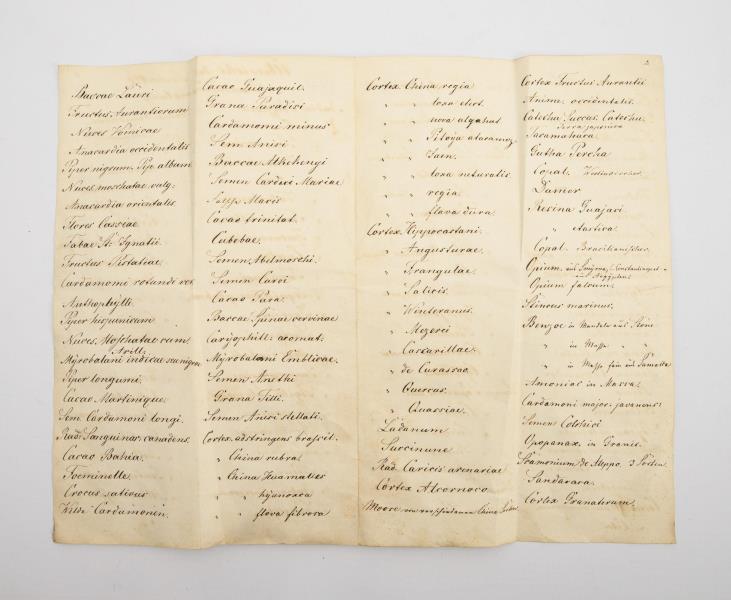 2.
Baccae Lauri
Fructus Aurantiorum
Nuces Vomicae
Anacardia occidentalis
Piper nigrum, Pip album
Nuces moschatae valg:
Anacardia orientalis
Flores Cassiae
Fabae St. Ignatii.
Fructus Pistatiae
Cardamomi rotundi
Anthophylli
Piper hispanicum
Nuces Moschatae cum
Arill:
Myrobalani indicae
Piper longum.
Cacao Martinique.
Sem Cardamoni longi.
Rad. Sanguinar. canadens.
Cacao Bahia.
Foeminelle.
Crocus sativus
Wilde Cardamomen.
Cacao Guajaquil.
Grana Paradisi
Cardamomi minus
Sem Anisi
Baccae Alkekengi
Semen Cardui Mariae
Maris
Cacao trinitat.
Cubebae.
Semen Abelmoschi.
Semen Carvi
Cacao Para.
Baccae Spinae cervinae
Caryophill: aromat:
Myrobalani Emblicae.
Semen Anethi
Grana Tilli.
Semen Anisi stellati.
Cortex adstringens brasil.
" China rubra.
" China Huamalies
" "
" " flava fibrosa
Cortex China regia
" "
" " nova
" " Pitoja
" " Jaen.
" "
" " regia.
" " flava dura.
Cortex Hyppocastani.
" Angusturae.
" Frangulae
" Salicis
" Winteranus.
" Mezerei
" Cascarillae
" de Curassao.
" Quercus.
" Quassiae.
Ladanum
Succinum
Rad. Caricis arenariae
Cortex Alcornoco.
Moose von verschiedenen China
Cortex Fructus Aurantii
Anime occidentalis.
Catechu, Succus Catechu.
Terra japonica
Tacamahaca.
Gutha Percha
Copal,
Damer
Resina Guajaci
" elastica.
Copal Brasilianischer.
Opium aus Smyrna, Constantinopel
aus Aegypten
Opium falsum.
Stincus marinus.
Benzoe in Mandeln aus Siam
" in Massa " "
" in Massa fein aus Sumatra
Amoniac in Massa.
Cardamoni major: javanens:
Semen Colchici
Opopanax in Granis.
Scamonium de Aleppo 3 Sorten
Sandarara.
Cortex Granatorum.